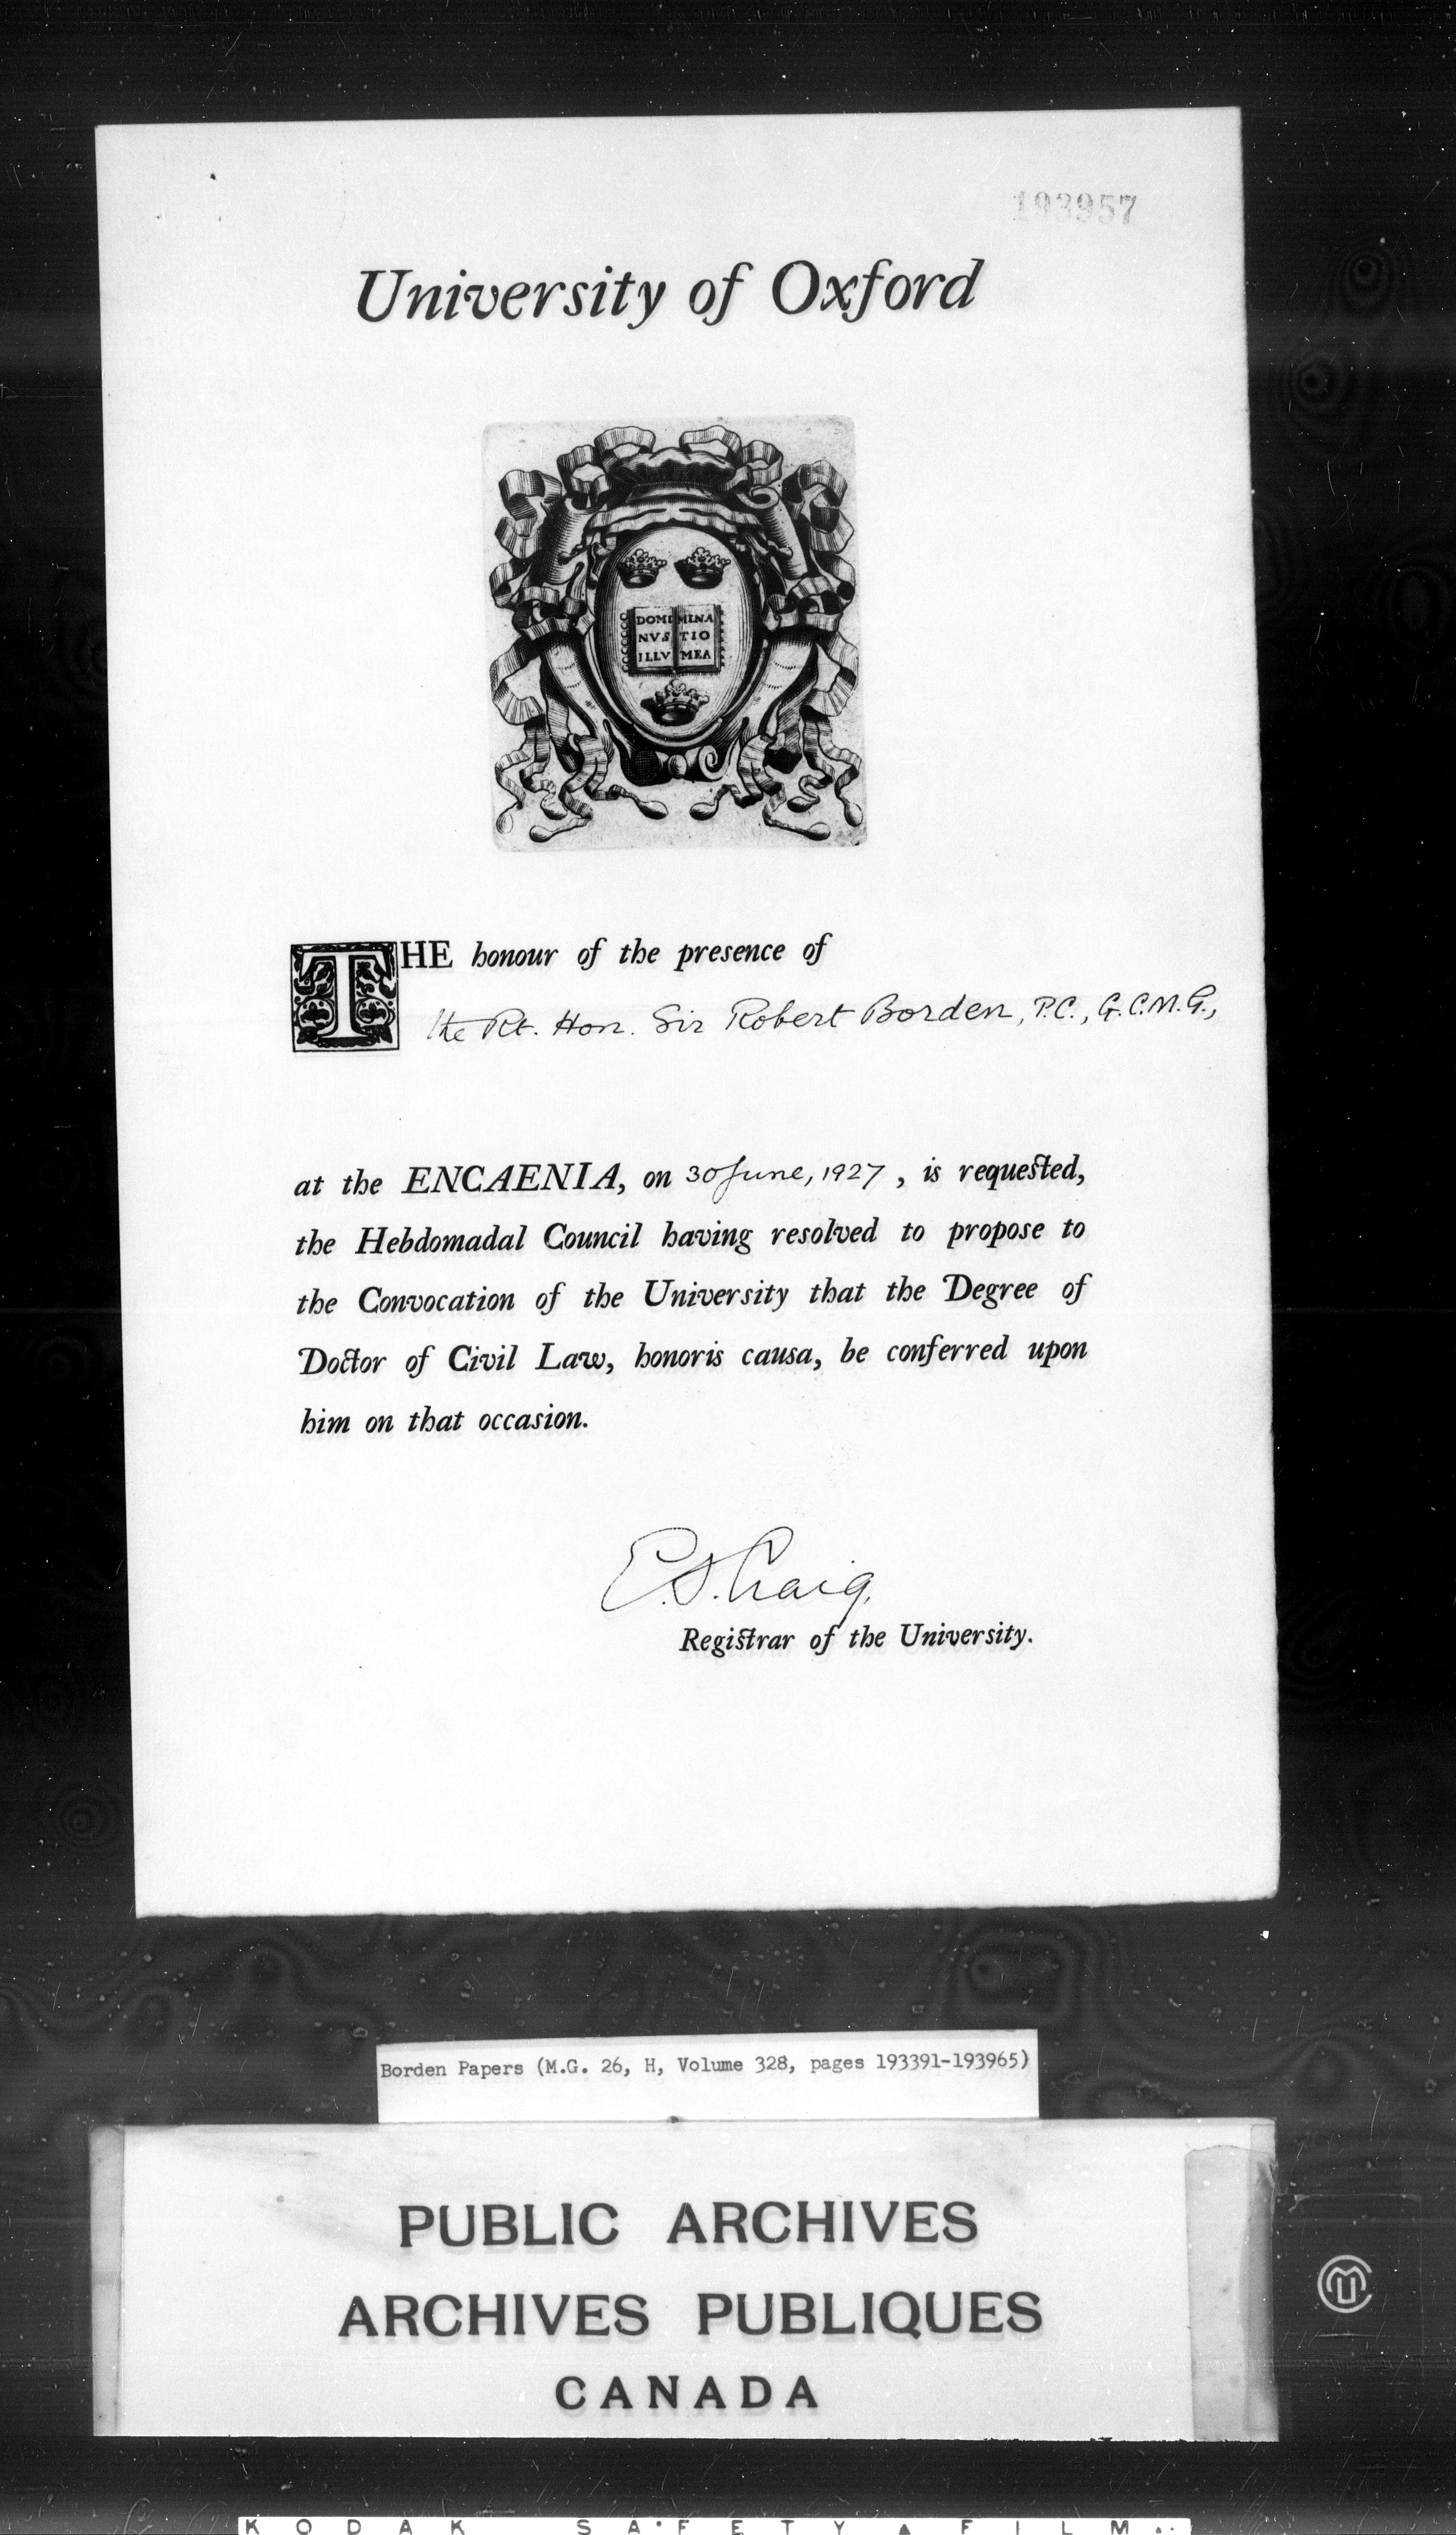 193957
University of Oxford
DOMI MINA
NVS TIO
ILLV MEA
THE honour of the presence of
the Rt. Hon. Sir Robert Borden, P.C., G.C.M.G.,
at the ENCAENIA, on 30 June, 1927, is requested,
the Hebdomadal Council having resolved to propose to
the Convocation of the University that the Degree of
Doctor of Civil Law, honoris causa, be conferred upon
him on that occasion.
E.S. Craig,
Registrar of the University.
Borden Papers (M.G. 26, H, Volume 328, pages 193391-193965)
PUBLIC ARCHIVES
ARCHIVES PUBLIQUES
CANADA
KODAK SAFETY FILM